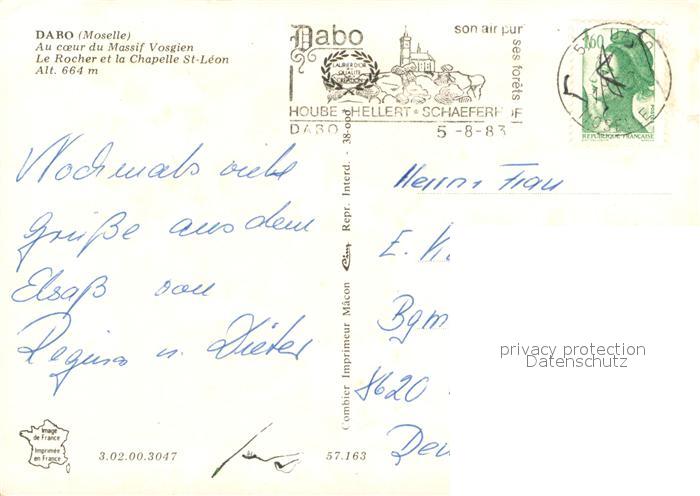 DABO (Moselle)
Au cœur du Massif Vosgien
Le Rocher et la Chapelle St-Léon
Alt. 664 m
Dabo
son air pur
ses forêts
LAURIER D'OR
QUALITÉ
HOUBE - HELLERT - SCHAEFERHOF
DABO 5-8-83
1,60
DABO
REPUBLIQUE FRANÇAISE
Nochmals viele
Grüße aus dem
Elsaß von
Regina u. Dieter
Herrn Frau
E. K
Bgm
8620
Deu
privacy protection
Datenschutz
Combier Imprimeur Mâcon Cim Repr. Interd. - 38-
Image
de France
Imprimée
en France
3.02.00.3047
57.163